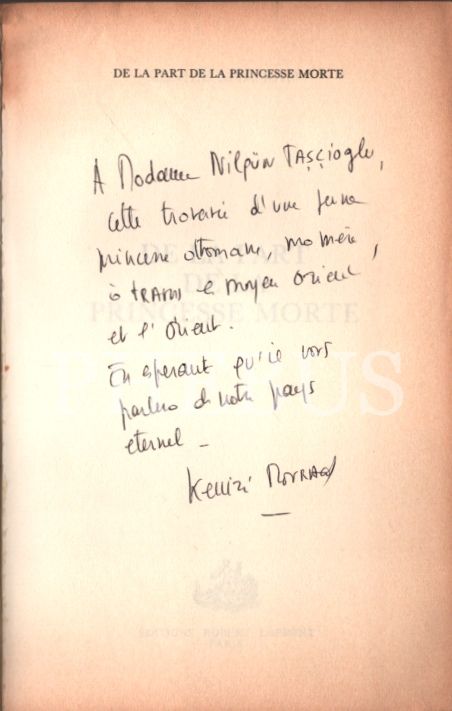 DE LA PART DE LA PRINCESSE MORTE
A Madame Nilgün TAŞÇIOGLU,
cette traversée d'une jeune
princesse ottomane, ma mère,
à travers le moyen orient
et l'orient.
En espérant qu'il vous
parlera de notre pays
eternel -
Kenizé MOURAD
DE LA PART
DE LA
PRINCESSE MORTE
PHEBUS
EDITIONS ROBERT LAFFONT
PARIS